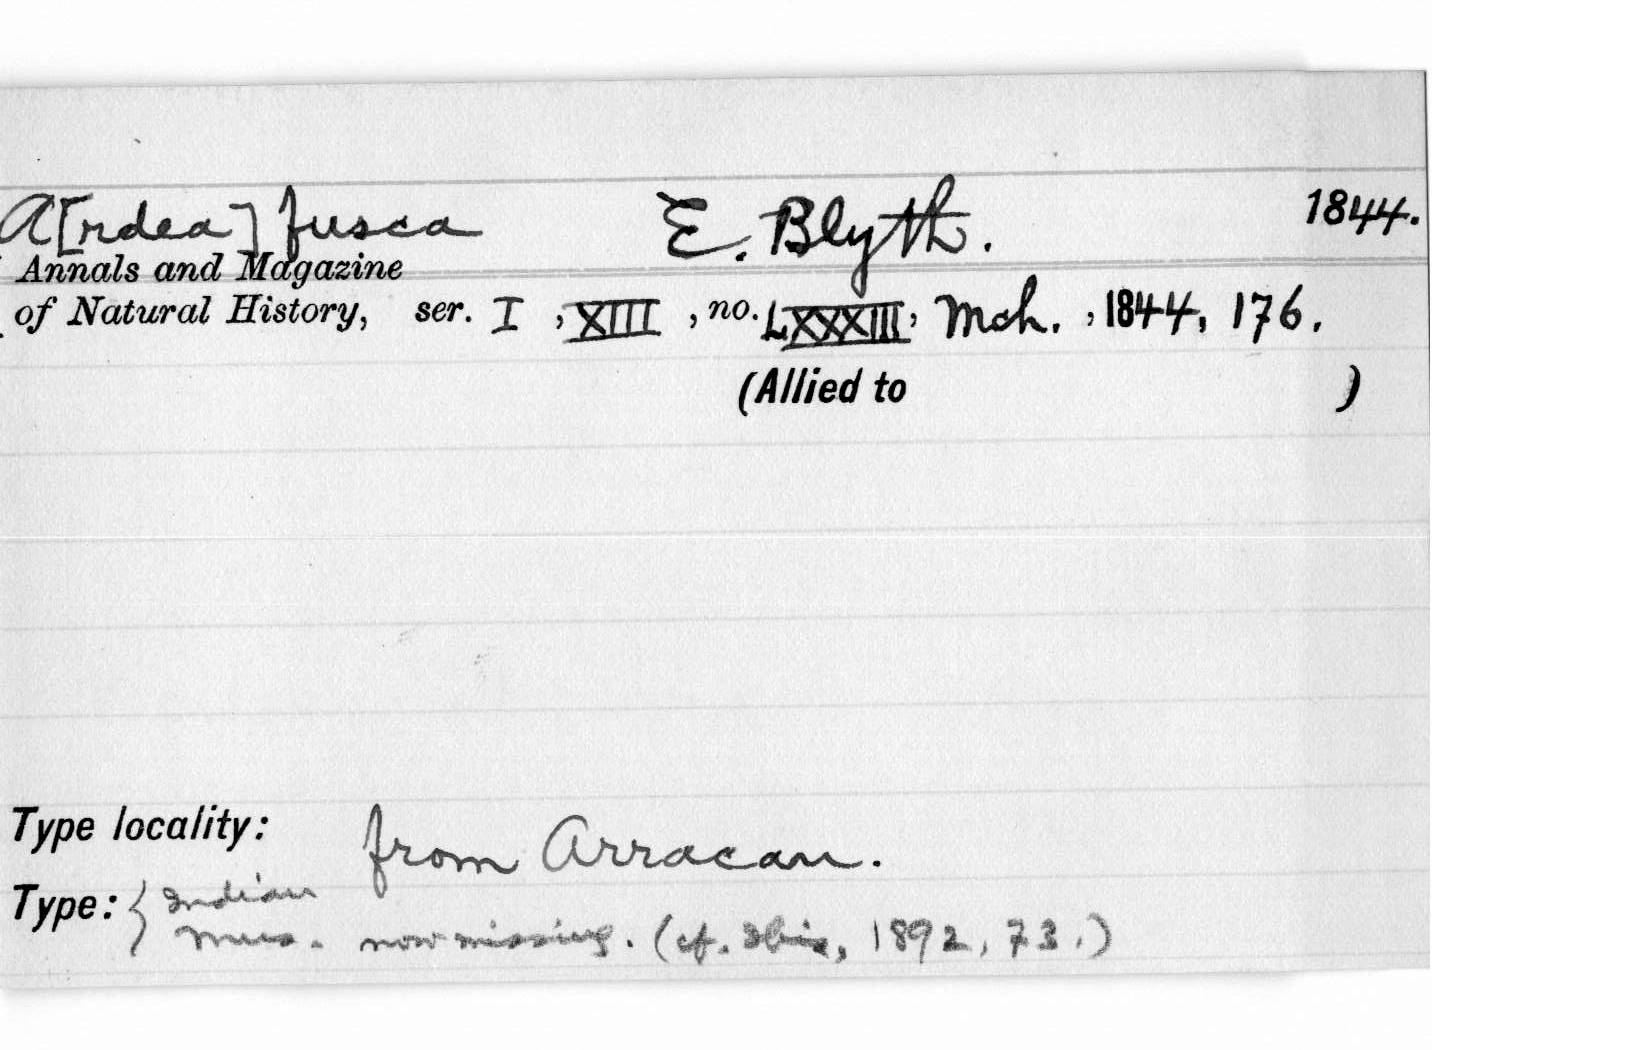 A[rdea] fusca E. Blyth. 1844.
Annals and Magazine
of Natural History, ser. I , XIII , no. LXXXIII, Mch. , 1844, 176.
(Allied to )
Type locality: from Arracan.
Type: { Indian
Mus. now missing. (cf. Ibis, 1892, 73.)